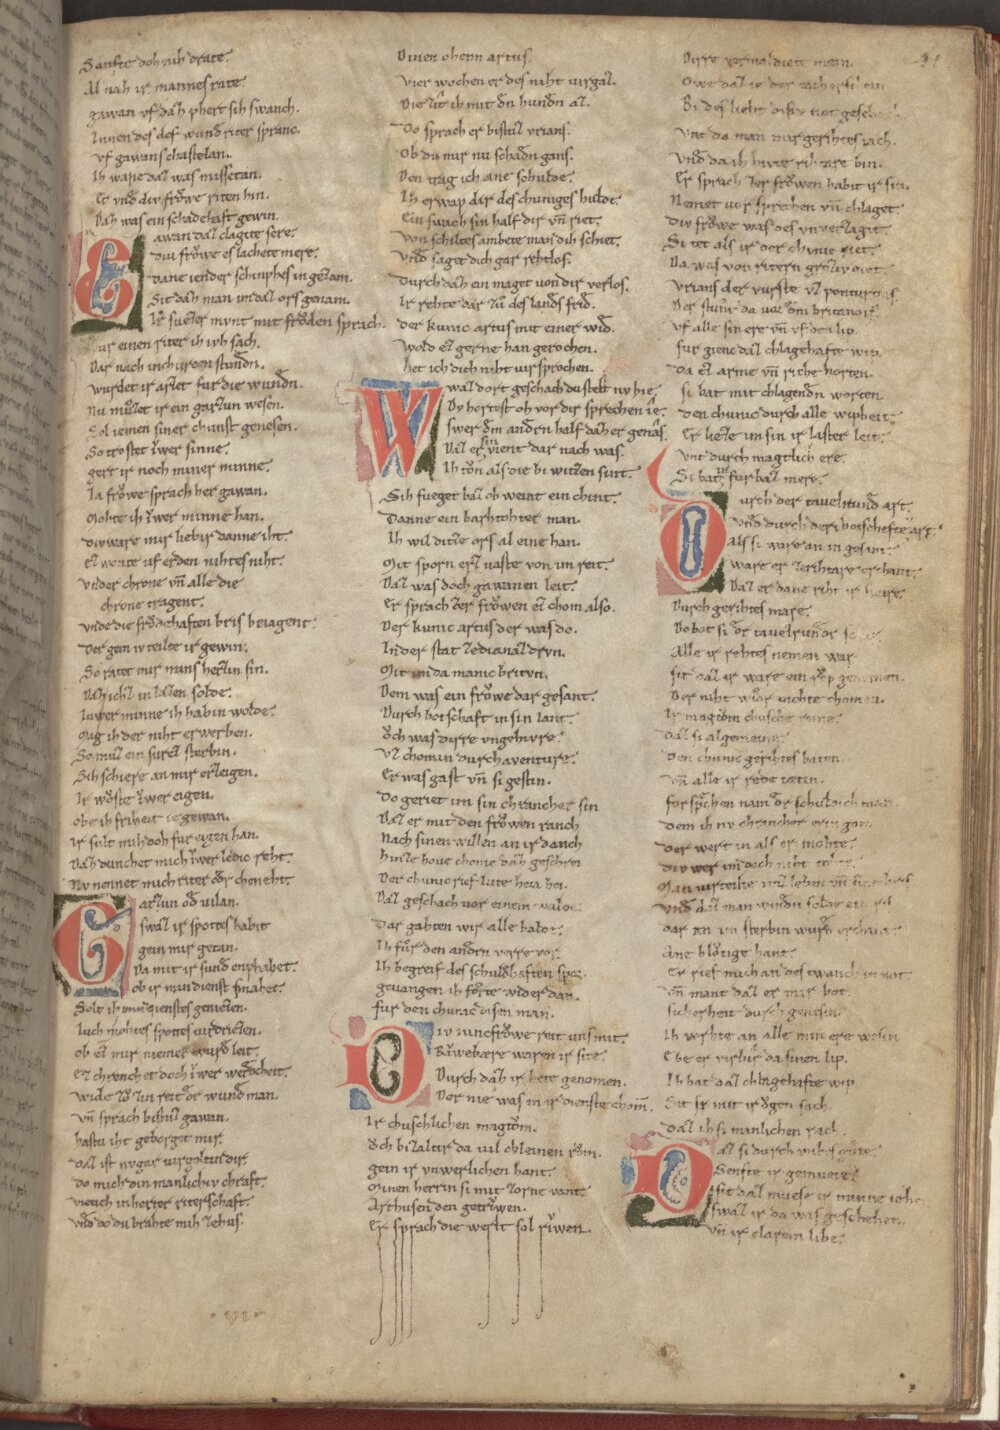 Sanfte doh nih drate.
Al nah ir mannes rate.
gawan vf dah phert sih swanch.
Innen des der wund riter spranc.
vf gawans chastelan.
Ih wære daz was missetan.
Er vnd div frowe riten hin.
Dah was ein schadehaft gewin.
awan daz clagite sere.
diu frowe es lachete mere.
danne iender schinphes in gezam.
Sit dah man im daz ors genam.
Ir suzer mvnt mit froden sprach.
fur einen riter ih ivh sach.
Dar nach in churcen stundn.
wurdet ir arzet fur die wundn.
Nu muzet ir ein garzun wesen.
Sol iemen siner chunst genesen.
So trostet iwer sinne.
gert ir noch miner minne.
Ia frowe sprach her gawan.
Mohte ih iwer minne han.
div ware mir liebir danne iht.
Ez wonte uf erden nihtes niht.
vnder chrone vn alle die
chrone tragent.
vnde die frodehaften bris beiagent.
Der gein iv teilte ir gewin.
So ratet mir mins herzin sin.
Dah ichz in lazen solde.
Iwer minne ih habin wolde.
Mag ih der niht erwerben.
So muz ein surez sterbin.
Sih schiere an mir erzeigen.
Ir woste iwer eigen.
obe ih friheit ie gewan.
ir solt mih doh fur eigen han.
Dah dunchet mich iwer ledic reht.
Nv nennet mich riter odr chneht.
arzun od vilan.
swaz ir spottes habit
gein mir getan.
Da mit ir sund enphahet.
ob ir min dienst smahet.
Solt ih min dienstes geniezen.
Iuch mohtes spottes virdriezen.
ob ez mir niemer wurd leit.
Ez chrenchet doch iwer werdicheit.
wider zu zin reit dr wund man.
vn sprach bistuz gawan.
hastu iht geborget mir.
Daz ist nv gar virgolten dir
do mich din manlichiv chraft.
vieuch in herter riterschaft.
vnd do du brahte mih zehus.
Dinen oheim artus.
vier wochen er des niht virgaz.
Die zit ih mit dn hundn az.
Do sprach er bistuz vrians.
Ob du mir nu schadn gans.
Den trag ich ane schulde.
Ih erwap dir des chuniges hulde.
Ein swach sin half dir vn riet.
von schiltes ambete man dih schiet.
vnd saget dich gar rehtlos.
Durch dah ein maget von dir verlos.
Ir rehte dar zu des lands frid.
der kunic artus mit einer wid.
wold ez gerne han gerochen.
het ich dich niht virsprochen.
waz dort geschach du stest nv hie.
Dv hortest oh vor dir sprechen ie.
swer dm andrn half dah er genas.
Daz er sin vient dar nach was.
Ih ton als die bi witzen sint.
Sih fueget baz ob weint ein chint.
Danne ein barhtohter man.
Ih wil ditze ors al eine han.
Mit sporn erz vaste von im reit.
Daz was doch gawanen leit.
Er sprach zer frowen ez chom also.
Der kunic artus der was do.
In der stat zedianazdrvn.
Mit im da manic britvn.
Dem was ein frowe dar gesant.
Durch botschaft in sin lant.
Och was dirre vngehivre.
vz chomin durch aventure.
Er was gast vn si gestin.
Do geriet im sin chrancher sin
Daz er mit den frowen ranch
Nach sinen willen an ir danch
hinze hove chome dah geschrei
Der chunic rief lute heia hei.
Daz geschach vor einem walde.
Dar gahten wir alle balde.
Ih fur den andrn verre vor.
Ih begreif des schuldhaften spor.
gevangen ih forte wider dan.
fur den chunic disen man.
iv iuncfrowe reit uns mit.
Riwebære waren ir site.
Durch dah ir hete genomen.
Der nie was in ir dienste chom.
Ir chuschlichen magtom.
Och bizalter da vil chleinen rom.
gein ir vnwerlichen hant.
Minen herrin si mit zorne vant.
Arthusen den getriwen.
Er sprach die werlt sol riwen.
Dirre vermaldiete mein.
Owe daz ie der tach erschein.
Bi des lieht disiv not geschach.
vnt da man mir gerihtes iach.
vnd da ih hivte rihtare bin.
Er sprach zer frowen habit ir sin.
Nemet vor sprechen vn chlaget
div frowe was des vnverzagit.
Si tet als ir der chunic riet.
Da was von ritern groziv diet.
vrians der vurste vz ponturtois.
Der stunt da vor dm britanois.
vf alle sin ere vn vf den lip.
fur gienc daz chlagehafte wip.
da ez arme vn riche horten.
si bat mit chlagendn worten
den chunic durch alle wipheit.
Er lieze im sin ir laster leit.
vnt durch magtlich ere.
Si bat in fur baz mere.
urch der tavelrund art.
vnd durch der botschefte vart.
als si ware an in gesunt.
ware er zerihtare erchant.
Daz er dane riht ir swære
Durch gerihtes mare.
Do bat si dr tavelrundr schar
Alle ir rehtes nemen war
sit daz ir ware ein rop genomen.
Der niht wider mohte chomen.
Ir magtom chusche reine.
daz si algemeine.
den chunic gerihtes baten.
vn alle ir rede tæten.
forsprechen nam dr schuldich man.
dem ih nv chrancher eren gan.
der wert in als er mohte.
div wer im doch niht tohte.
Man virteilte imz lebin vn
vnd daz man windn solde ein ris
dar an im sterbin wurd erchant
ane blotige hant.
Er rief mich an des twanch in not.
vn mant daz er mir bot.
sicherheit durch genesin.
Ih vorhte an alle min ere wesin
Ebe er virlur da sinen lip.
Ih bat daz chlagehafte wip
Sit si mit ir ogen sach.
daz ih si manlichen rach.
az si durch wibes gute.
senfte ir gemuote.
sit daz muese ir minne iehe
swaz ir da was geschehen.
vn ir clarem libe.